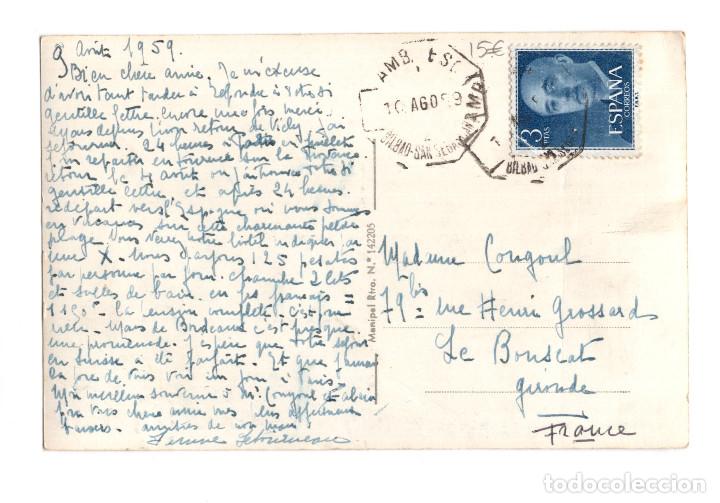 9 Août 1959.
Bien chère amie. Je m'excuse
d'avoir tant tardé à répondre à votre si
gentille lettre. Encore une fois merci.
depuis mon retour de Vichy, j'ai
24 heures à Paris
repartir en tournée sur la
retour le 4 août où j'ai trouvé votre si
gentille lettre et après 24 heures
redépart vers l'Espagne où nous sommes
en vacances sur cette charmante petite
plage. Vous verrez notre hôtel indiqué par
une X. Nous payons 125 pesetas
par personne par jour. chambre 2 lits
et salles de bain. en frs français =
1150 f. la pension complète. c'est pour
rien. Mais de Bordeaux c'est presque
une promenade. J'espère que votre séjour
en Suisse a été parfait. Et que j'aurai
la joie de vous voir un jour à Paris.
Mon meilleur souvenir à Mr. Congoul et
pour vous chère amie mes plus affectueux
baisers. amitiés de mon mari
Manipel Rtro. N.º 142205
15€
AMB.
10 AGO 59
BILBAO-SAN SEBN
AMB
BILBAO-S
3
PTAS
ESPAÑA
CORREOS
Madame Congoul
79 bis rue Henri Grossard
Le Bouscat
Gironde
France
todocoleccion.net